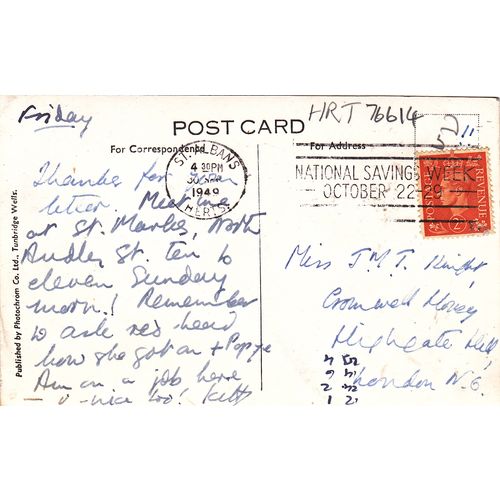 Friday
HRT 76614
11
52
POST CARD
For Correspondence
For Address
ST. ALBANS
4 30PM
30 SEP
1949
HERTS.
NATIONAL SAVINGS WEEK
OCTOBER 22-29
REVENUE
Thanks for your
letter Meet me
at St. Marks, North
Audley St. ten to
eleven Sunday
morn! Remember
to ask red head
how she got on + Popye
Am on a job here
nice too! Kitty
Miss J.M.T. Knight,
Cromwell House,
Highgate Hill,
London N.6.
Published by Photochrom Co. Ltd., Tunbridge Wells.